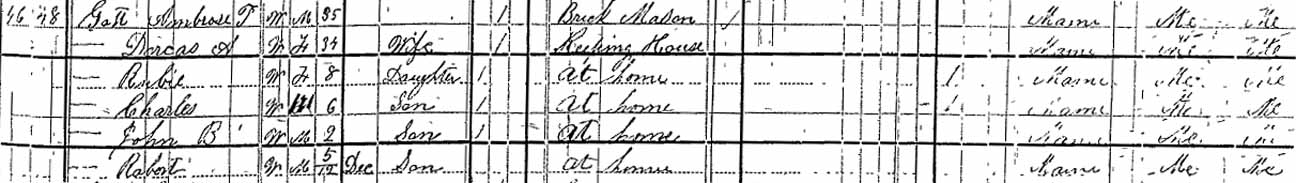 46 48 Gatt Ambrose T W M 35 1 Brick Mason / Maine Me Me
— Dorcas A W F 34 Wife 1 Keeping House Maine Me Me
— Rubie W F 8 Daughter 1 At home 1 Maine Me Me
— Charles W M 6 Son 1 At home 1 Maine Me Me
— John B W M 2 Son 1 At home Maine Me Me
— Robert W M 5/12 Dec Son At home Maine Me Me